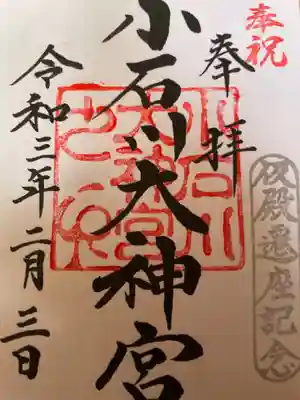 奉祝
仮殿遷座記念
奉拝
小石川大神宮
小石川
大神宮
令和三年二月三日